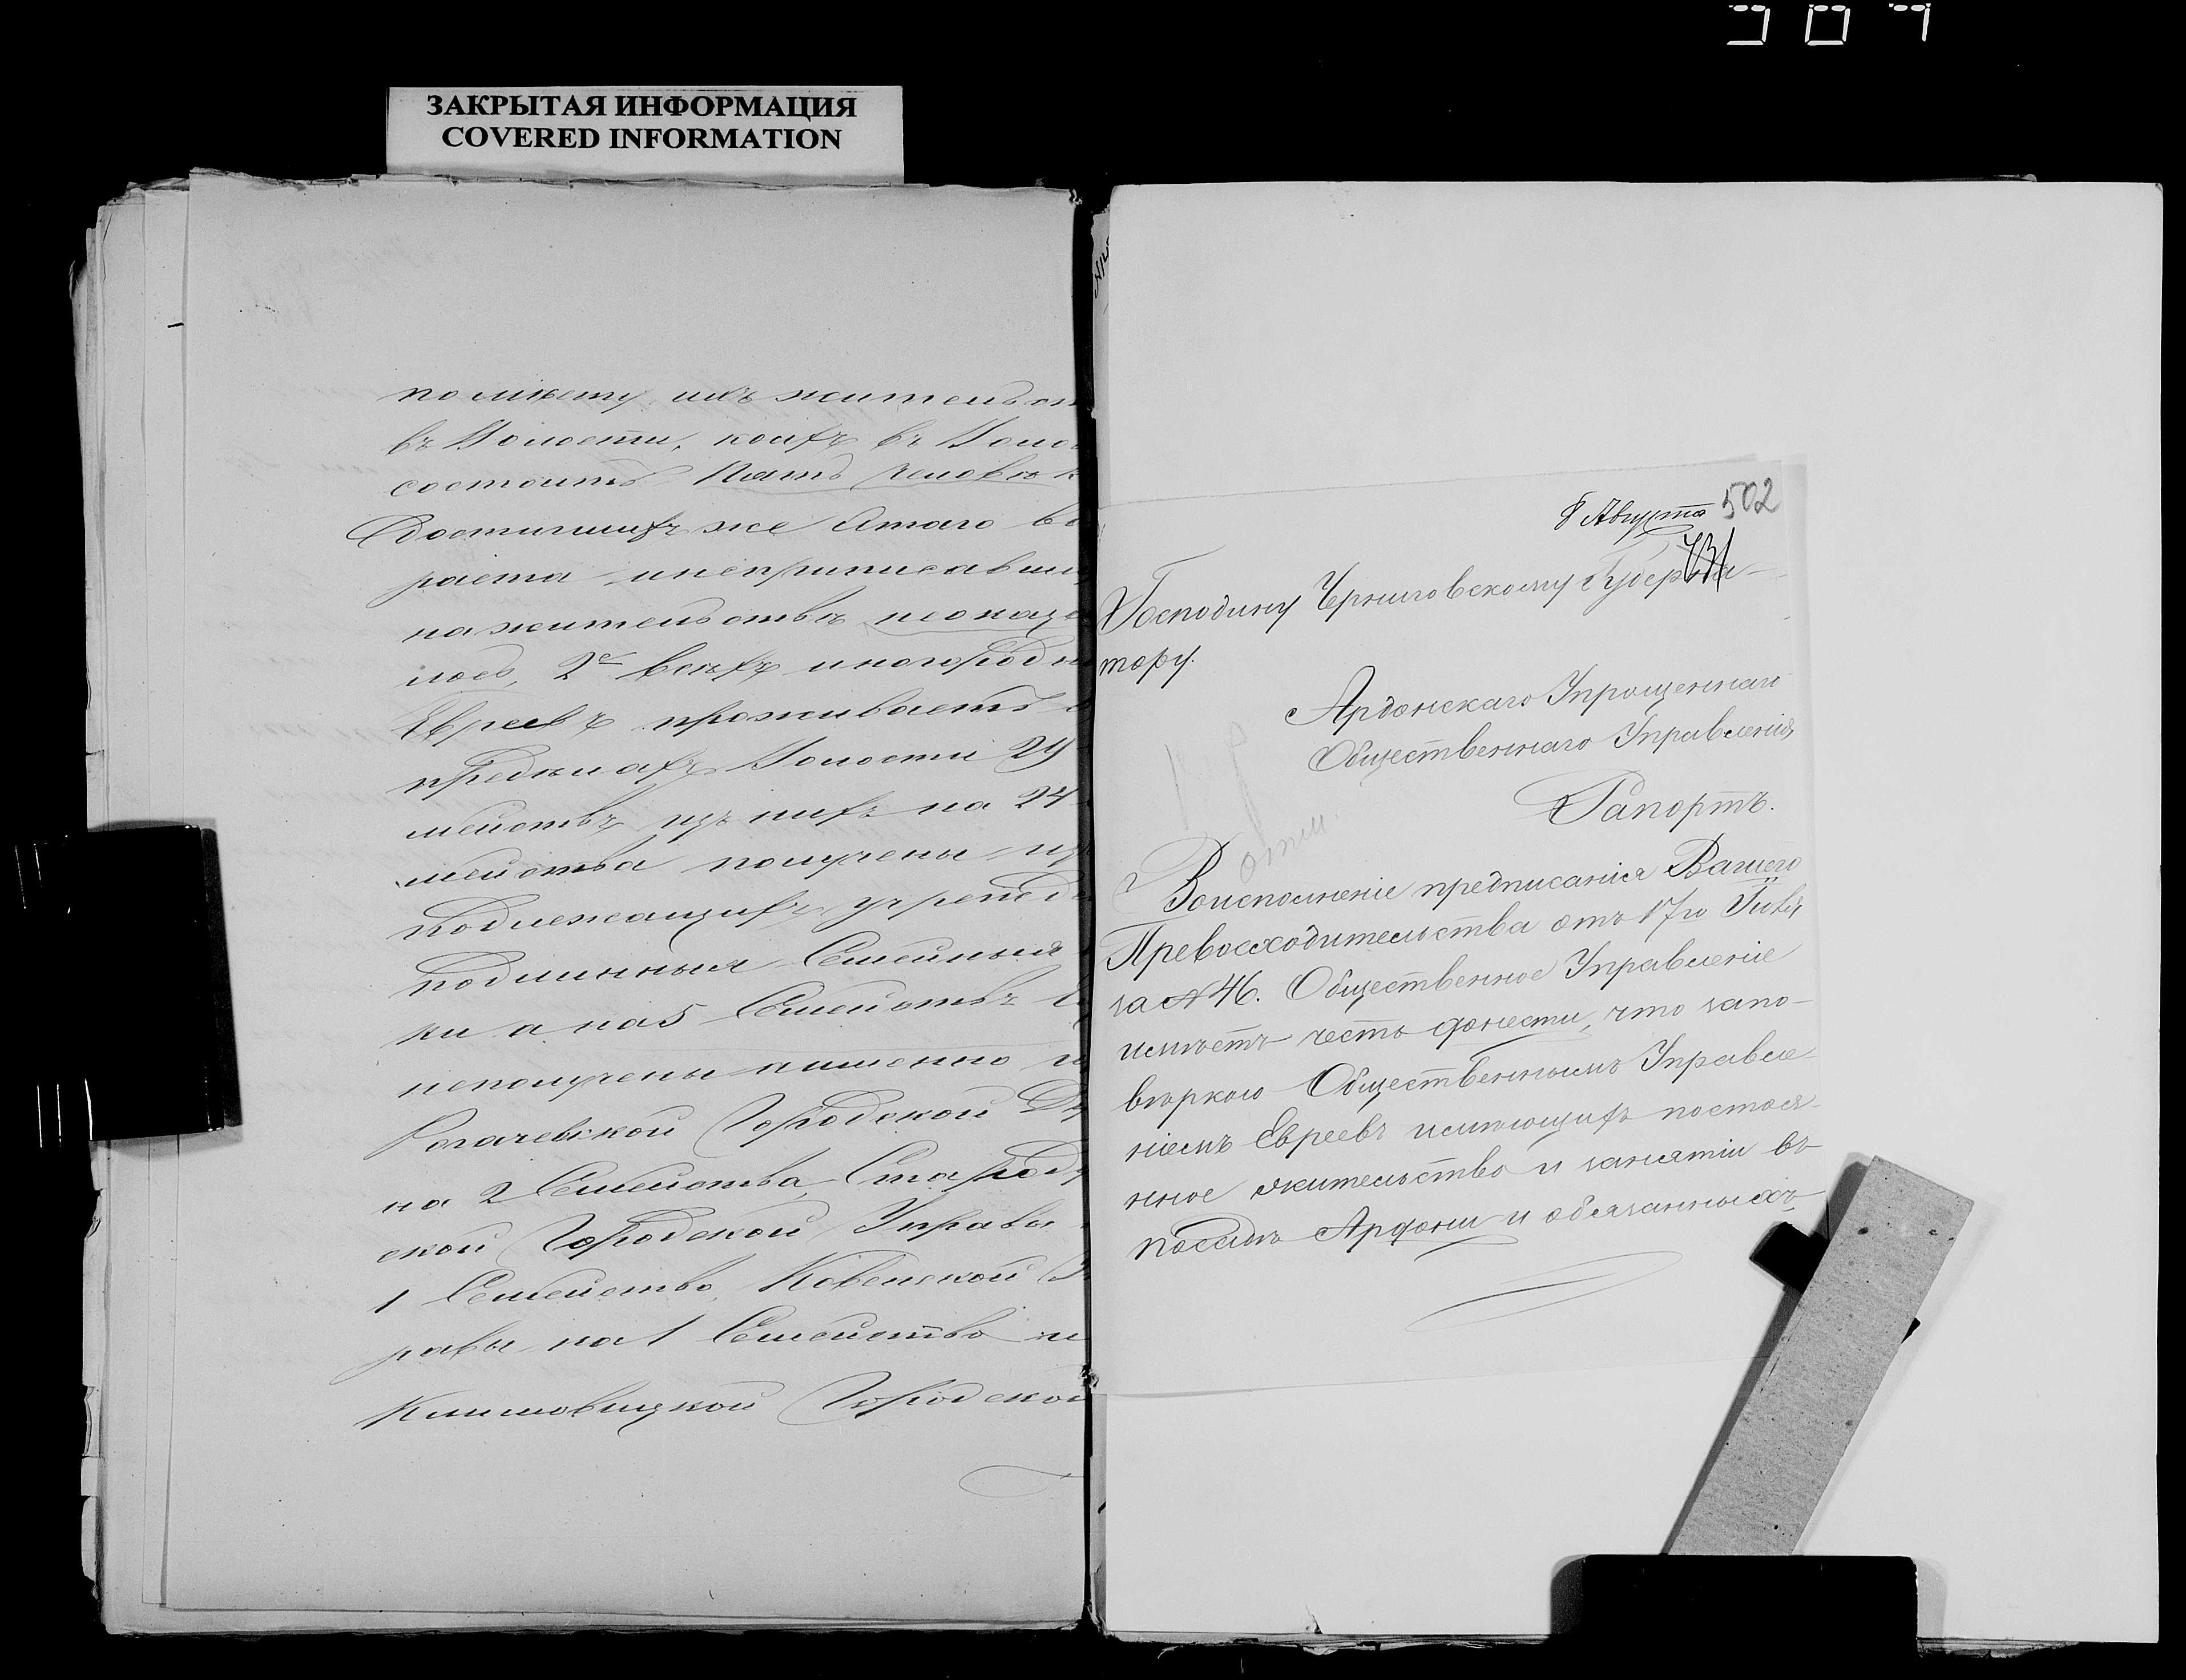 ЗАКРЫТАЯ ИНФОРМАЦИЯ
COVERED INFORMATION
по мѣсту ихъ жительст
въ Волости, коихъ въ Воло
состоитъ Пять человѣк
Достигшихъ же этаго во
раста инеприписавши
на жительствѣ неоказа
лось, 2е всѣхъ иногородн
Евреевъ проживаетъ в
предѣлахъ Волости 29
мействъ изъ нихъ на 24
мейства получены из
подлежащихъ учрежде
подлинныя Семейныя
ки а на 5 Семействъ
неполучены аименно
Рогачевской Городской Ду
на 2 Семейства, Староду
ской Городской Управы
1 Семейство, Ковенской У
равы на 1 Семейство и
Климовицкой Городской
8 Августа 502
Господину Черниговскому Губерна-
тору.
Ардонскаго Упрощеннаго
Общественнаго Управленія
Рапортъ.
Воисполненіе предписанія Вашего
Превосходительства отъ 17го Іюля
за № 46. Общественное Управленіе
имѣетъ честь донести, что запо-
вѣркою Общественнымъ Управле-
ніемъ Евреевъ имѣющихъ постоян-
ное жительство и занятіи въ
посадѣ Ардони и обязанныхъ